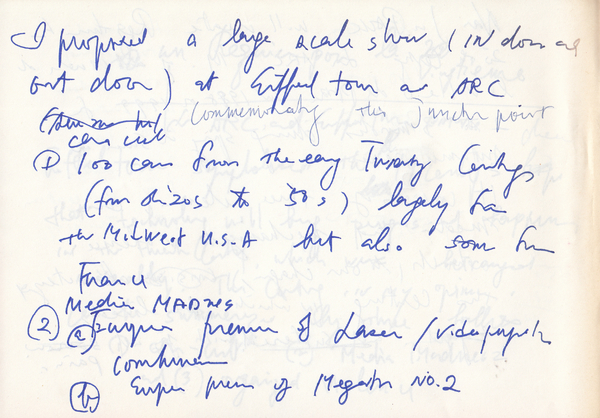 I proposed a large scale show (INdoor and
out door) at Eiffel tour or ARC
commemorating this junctur point
cars
① 100 cars from the early Twenty Century
(from the 20s to 50s) largely from
the MidWest U.S.A but also some from
France
Media MADNES
② (a) premier of Laser / video
(b) premier of Megatron No. 2